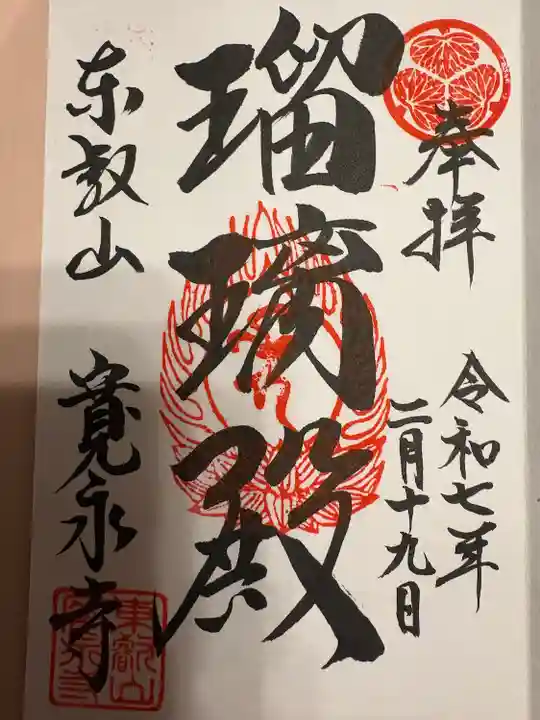 奉拝
令和七年
二月十九日
瑠璃殿
东叡山
寛永寺
東叡山